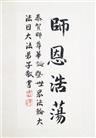 師恩浩蕩
恭賀師尊華誕暨世界法輪大
法日大法弟子敬書